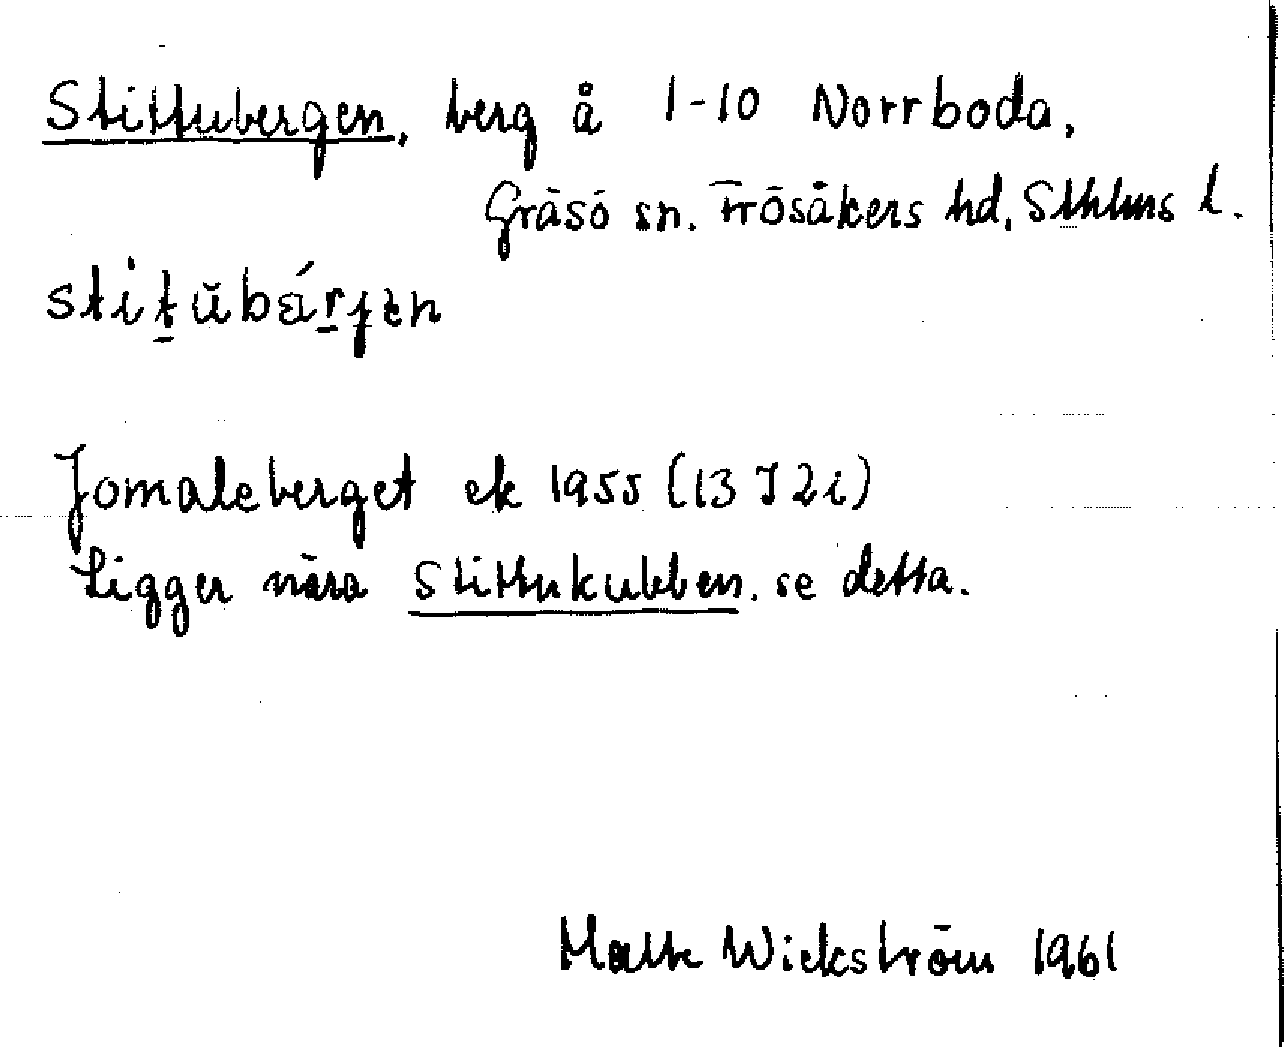 Stittubergen, berg å 1-10 Norrboda,
Gräsö sn. Frösåkers hd, Sthlms l.
stit̲ŭbár̲jen
Jomaleberget ek 1955 (13 I 2i)
Ligger nära Stittukubben. se detta.
Malte Wickström 1961